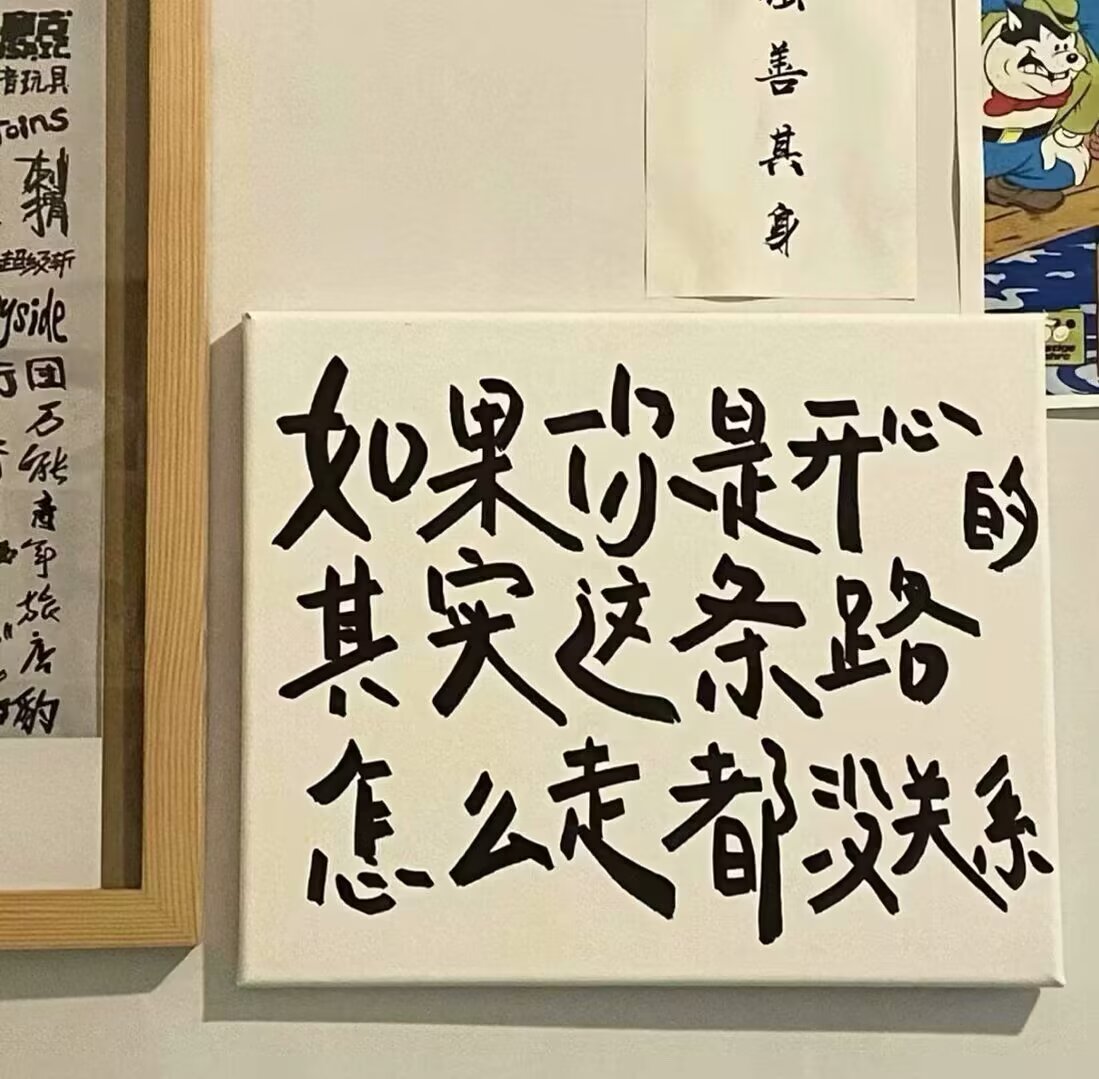 音玩具
oins
刺猬
超级斩
yside
团
万能青年旅店
善其身
如果你是开心的
其实这条路
怎么走都没关系